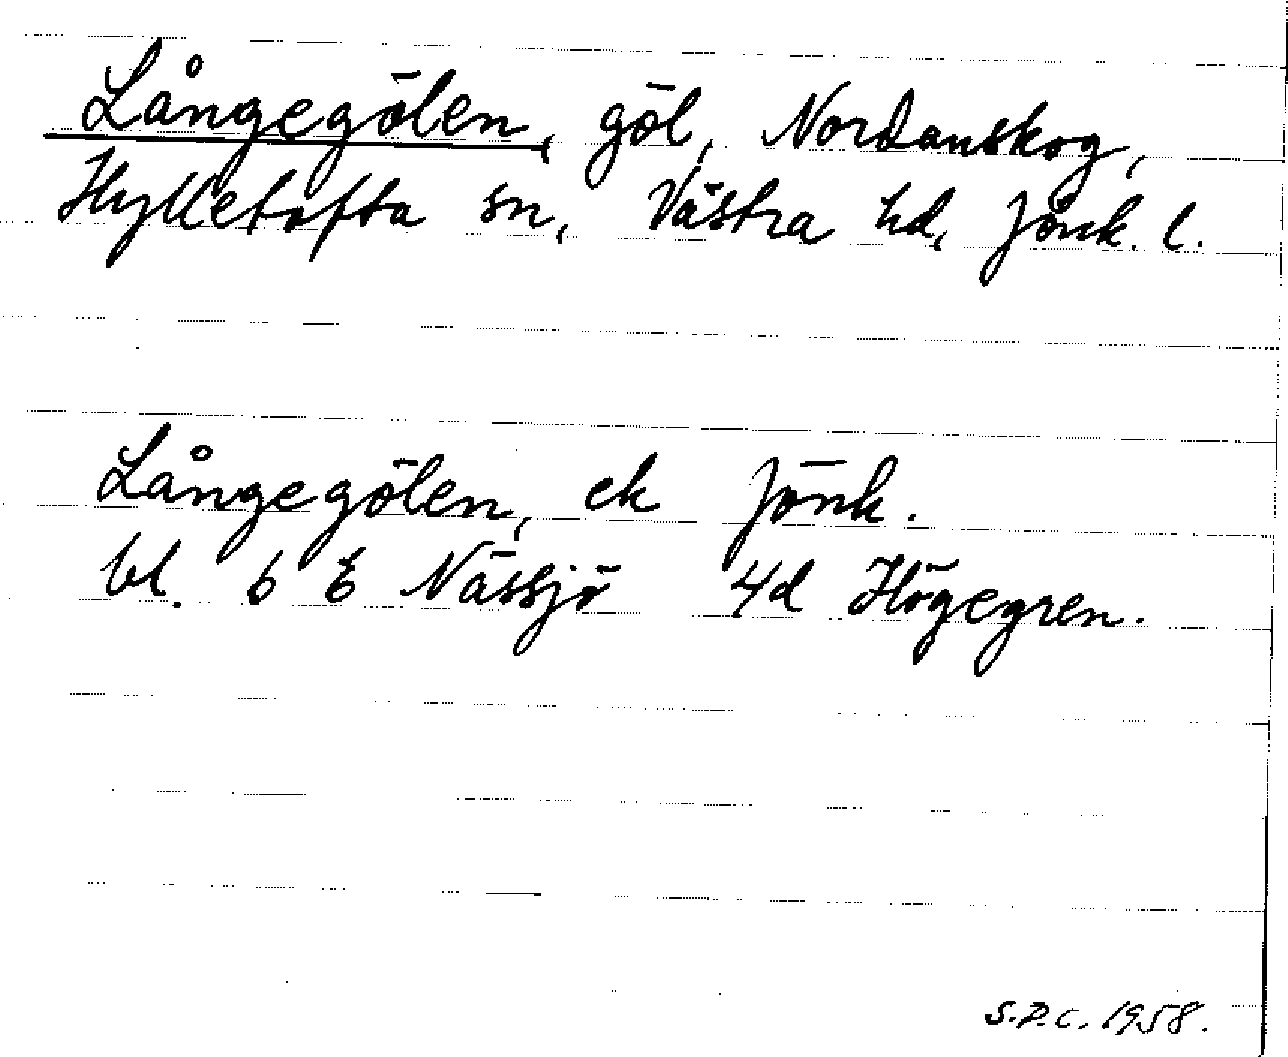 Långegölen, göl, Nordanskog,
Hylletofta sn, Västra hd, Jönk. l.
Långegölen, ek Jönk.
bl. 6 E Nässjö 4d Högegren.
S.P.C. 1958.